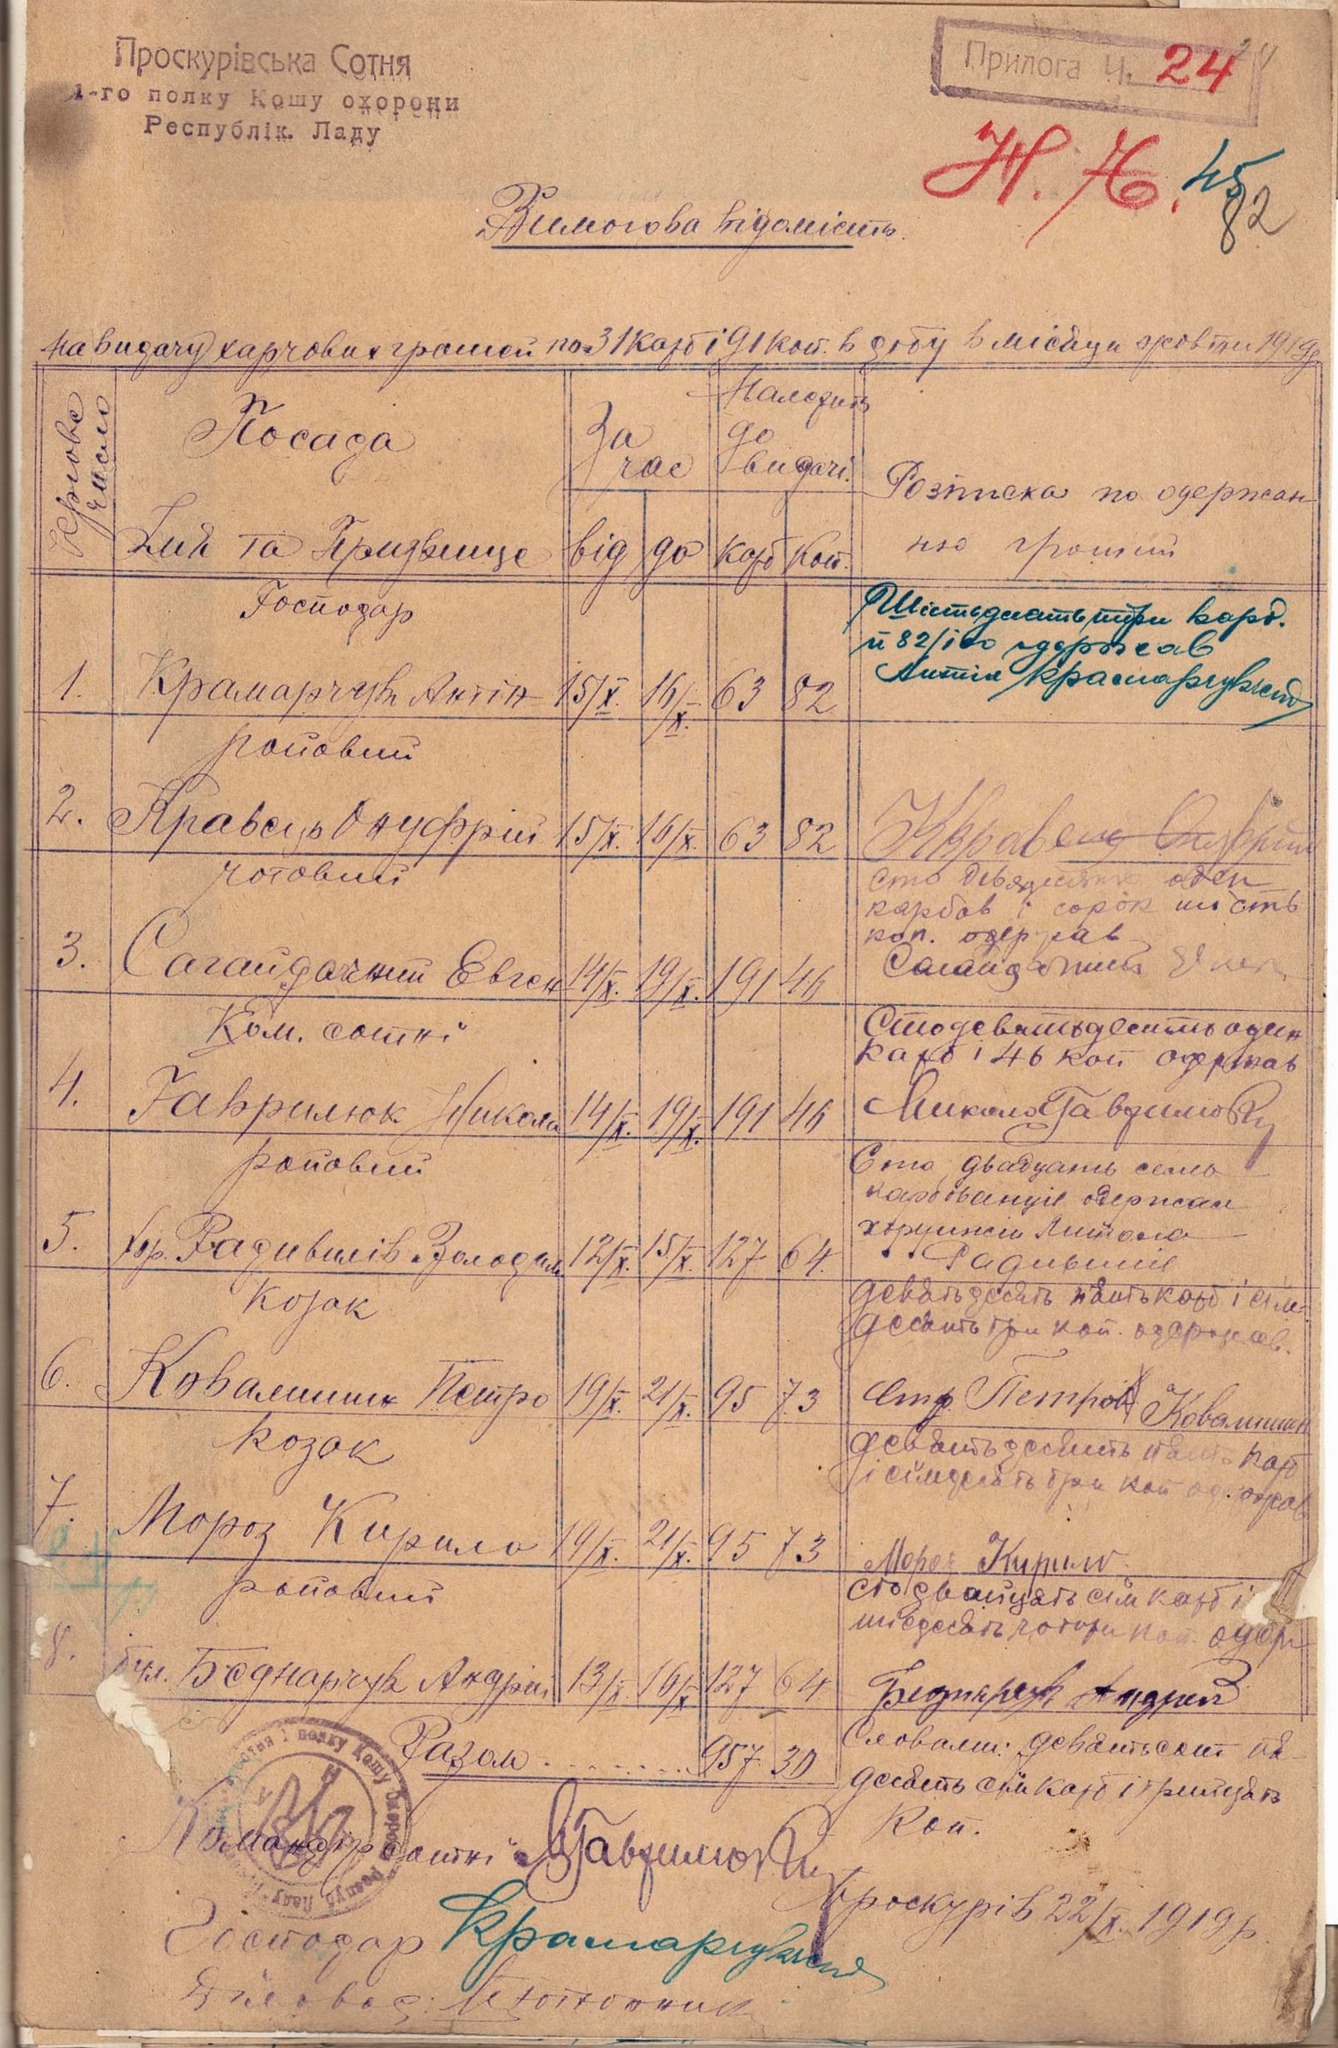 Проскурівська Сотня
1-го полку Кошу охорони
Республік. Ладу
Прилога Ч. 24
24
Н. Н. 45
82
Вимогова відомість
на видачу харчових грошей по 31 карб і 91 коп. в добу в місяци жовтни 1919р.
Чергове число
Посада
Імя та Призвище
За час
від до
Належить до видачі.
карб коп.
Розписка по одержан-
ню грошей
Господар
1. Крамарчук Антін 15/X. 16/X. 63 82
Шістьдесять три карб.
й 82/100 одержав
Антін Крамарчук
ройовий
2. Кравець Онуфрій 15/X. 16/X. 63 82
Кравець Онуфрий
чотовий
3. Сагайдачний Евген 14/X. 19/X. 191 46
сто девядесять оден
карбов і сорок шість
коп. одержав
Сагайдачний
Ком. сотні
4. Гаврилюк Микола 14/X. 19/X. 191 46
Стодевятьдесять один
карб і 46 коп одержав
Микола Гаврилюк
ройовий
5. хор. Радивилів Володим 12/X. 15/X. 127 64.
Сто двадцать семь
карбованців одержал
хорунжій
Радивилів
козак
6. Ковалишин Петро 19/X. 21/X. 95 73
девятьдесять пять карб і сім-
десять три коп. одержав.
Петро Ковалишин
козак
7. Мороз Кирило 19/X. 21/X. 95 73
девятьдесять пять карб
і сімдесять три коп одержав
Мороз Кирило
ройовий
8. бун. Беднарчук Андрій 13/X. 16/X. 127 64
сто двайцять сім карб і
шісдесять чотири коп. одер
Беднарчук Андрей
Разом . . . . . . . . 957 30
Словами: девятьсот пя-
десять сім карб і трицять
коп.
Командір сотні Гаврилюк
Проскурів 22/X. 1919 р.
Господар Крамарчук
Діловод: